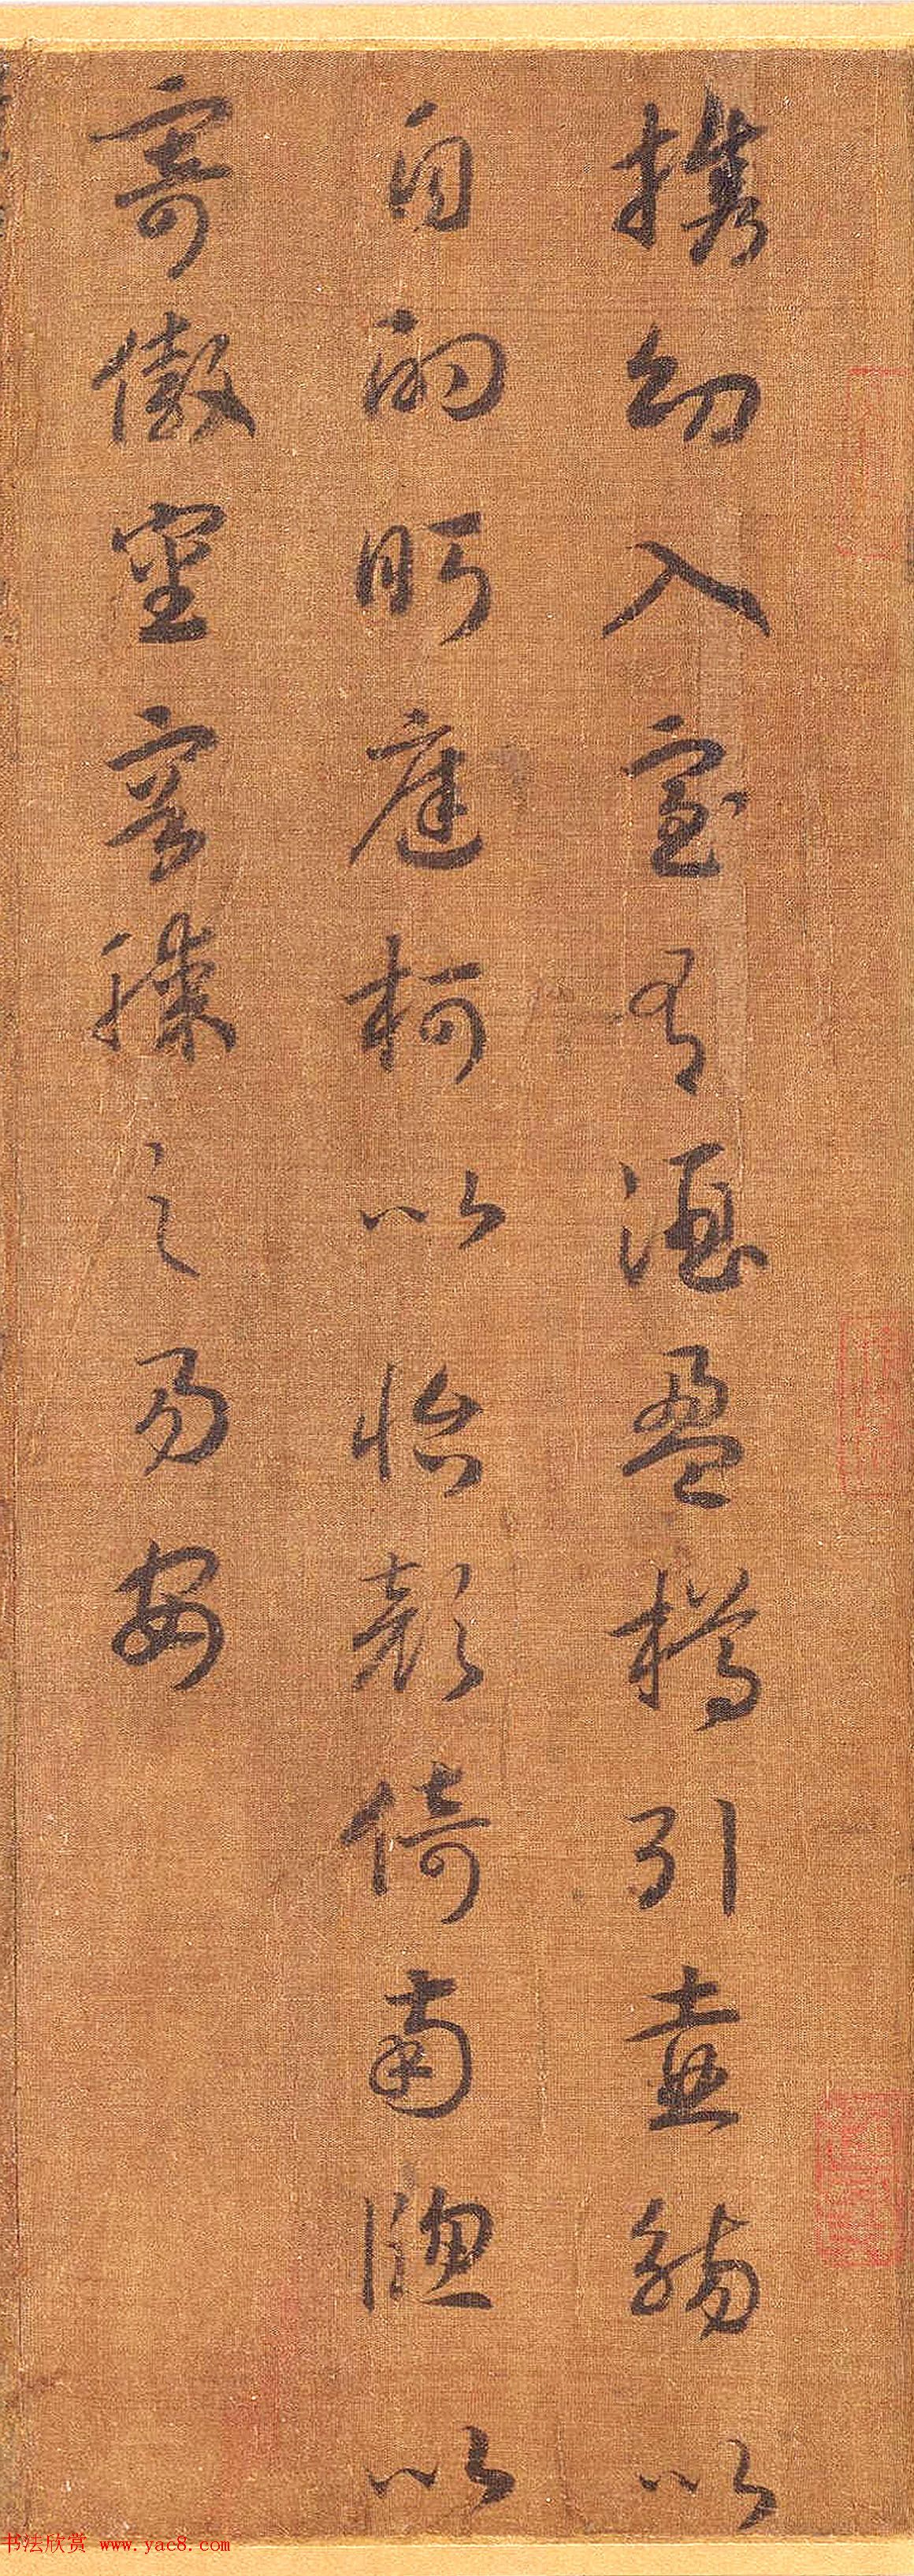 携幼入室有酒盈樽引壺觴以
自酌眄庭柯以怡顔倚南牕以
寄傲審容膝之易安
书法欣赏 www.yac8.com